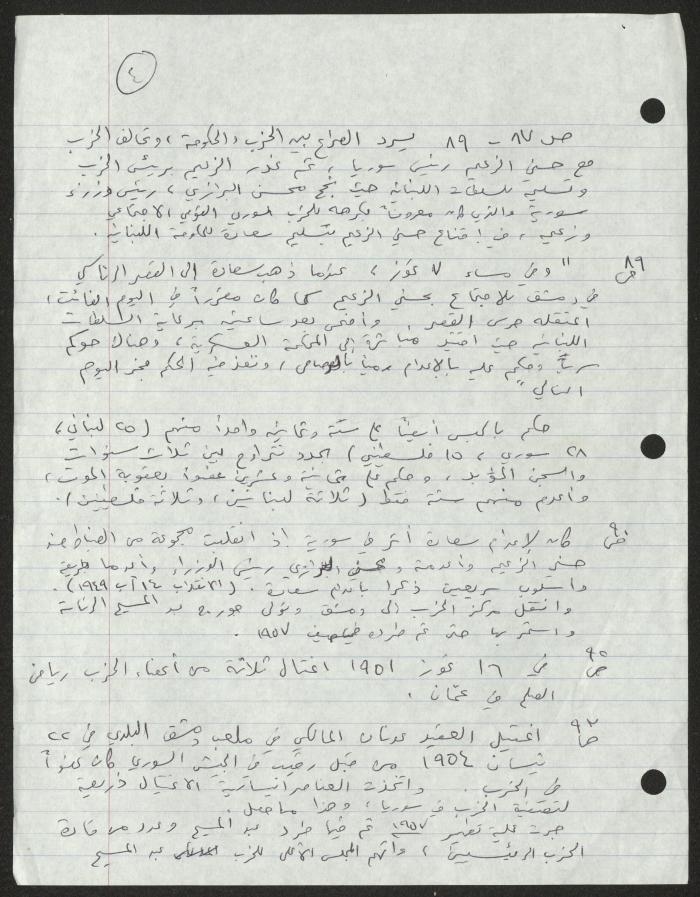 ٤
ص ٨٧ - ٨٩ يسرد الصراع بين الحزب والحكومة ، وتحالف الحزب
مع حسني الزعيم رئيس سوريا ، ثم غدر الزعيم برئيس الحزب
وتسليمه للسلطات اللبنانية حيث نجح محسن البرازي ، رئيس وزراء
سورية والذي كان معروفاً بكرهه للحزب السوري القومي الاجتماعي
وزعيمه ، في اقناع حسني الزعيم بتسليم سعادة للحكومة اللبنانية .
ص ٨٩ " وفي مساء ٧ تموز ، عندما ذهب سعادة إلى القصر الرئاسي
في دمشق للاجتماع بحسني الزعيم كما كان مقرراً في اليوم الفائت ،
اعتقله حرس القصر . وأضحى بعد ساعتين برعاية السلطات
اللبنانية حيث اقتيد مباشرة إلى المحكمة العسكرية ، وهناك حوكم
سرياً وحكم عليه بالإعدام رمياً بالرصاص ، وتنفذ فيه الحكم فجر اليوم
التالي "
حكم بالحبس أيضاً على ستة وثمانين واحداً منهم ( ٢٥ لبناني ،
٢٨ سوري ، ١٥ فلسطيني ) لمدد تتراوح بين ثلاث سنوات
والسجن المؤبد ، وحكم على ثمانية وعشرين عضواً بعقوبة الموت ،
وأعدم منهم ستة فقط ( ثلاثة لبنانيين ، وثلاثة فلسطينيين ) .
ص ٩٠ كان لإعدام سعادة أثر في سورية إذ انقلبت مجموعة من الضباط ضد
حسني الزعيم وأعدمته و البرازي رئيس الوزراء وأعدما بطريقة
وأسلوب سريعين ذكرا بإعدام سعادة . ( الانقلاب ١٤ آب ١٩٤٩ ) .
وانتقل مركز الحزب إلى دمشق وتولى جورج عبد المسيح الرئاسة
واستمر بها حتى تم طرده صيف ١٩٥٧ .
في ١٦ تموز ١٩٥١ اغتال ثلاثة من أعضاء الحزب رياض
الصلح في عمّان .
ص ٩٣ اغتيل العقيد عدنان المالكي في ملعب دمشق البلدي في ٢٢
نيسان ١٩٥٤ من قبل رقيب في الجيش السوري كان عضواً
في الحزب . واتخذت العناصر اليسارية الاغتيال ذريعة
لتصفية الحزب في سوريا ، وهذا ما حصل .
جرت عملية تطهير ١٩٥٧ تم فيها طرد عبد المسيح وعدد من قادة
الحزب الرئيسيين ، واتهم المجلس الأعلى للحزب عبد المسيح